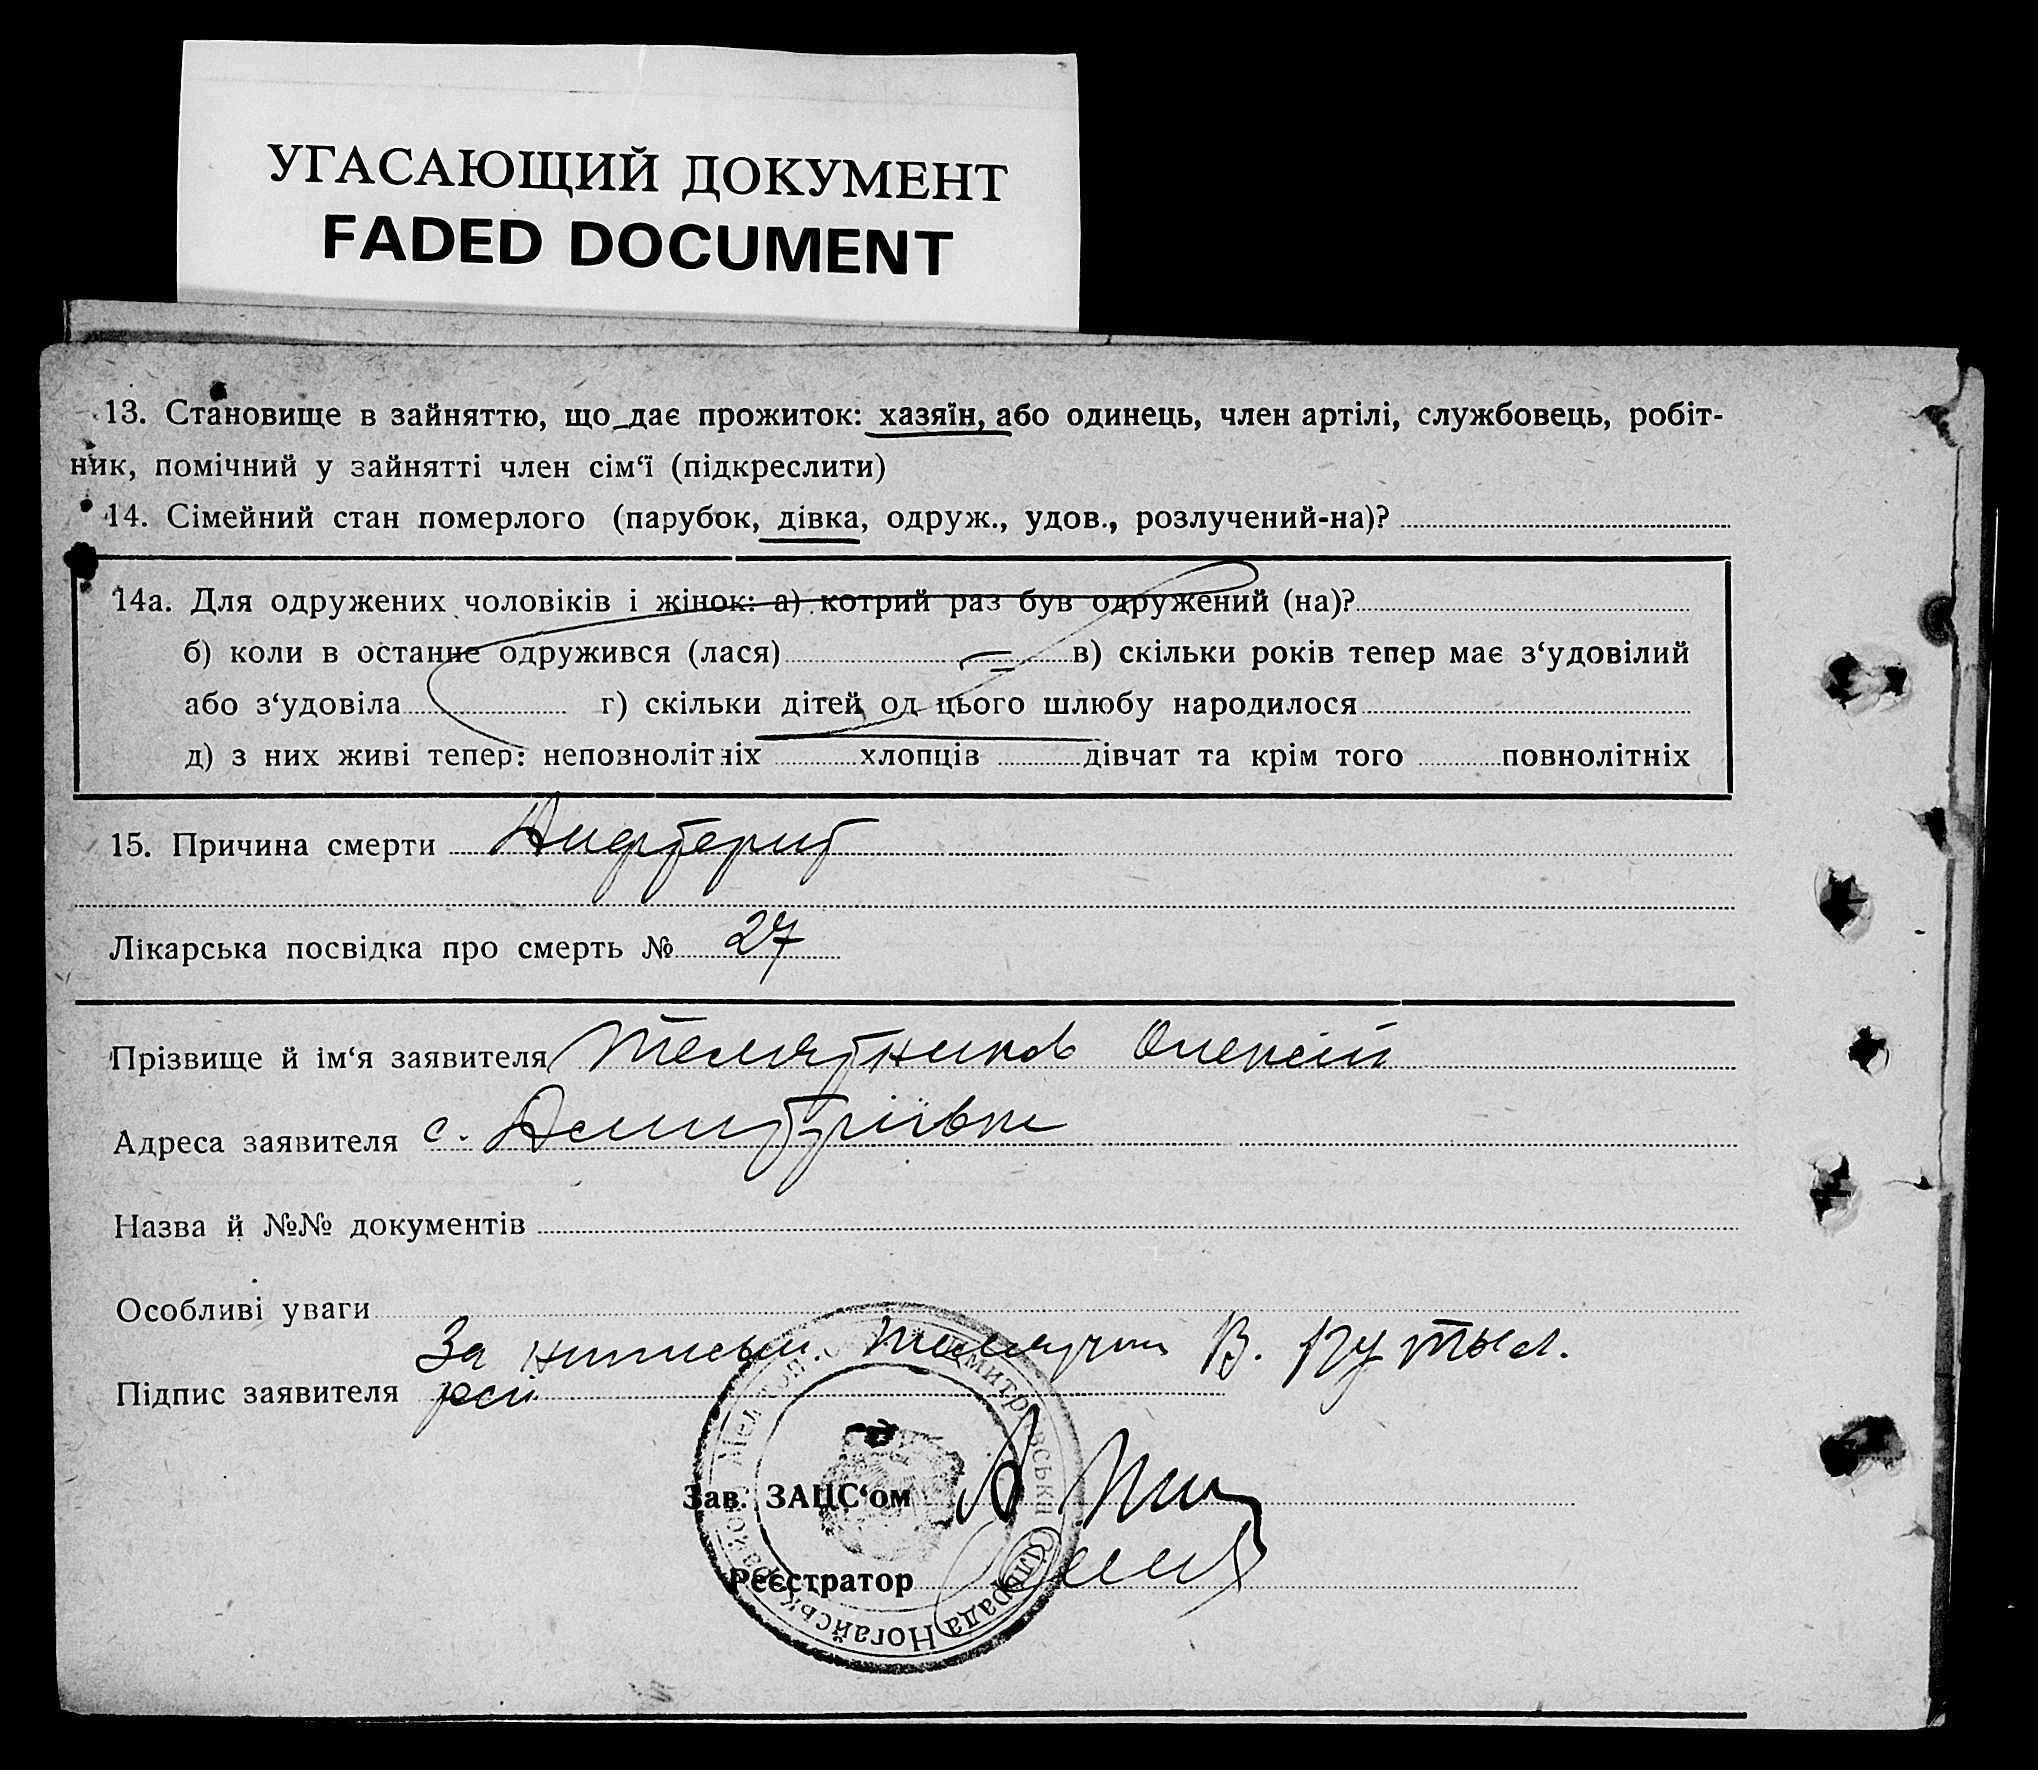 УГАСАЮЩИЙ ДОКУМЕНТ
FADED DOCUMENT
13. Становище в зайняттю, що дає прожиток: хазяїн, або одинець, член артілі, службовець, робіт-
ник, помічний у зайнятті член сім‘ї (підкреслити)
14. Сімейний стан померлого (парубок, дівка, одруж., удов., розлучений-на)?
14а. Для одружених чоловіків і жінок: а) котрий раз був одружений (на)?
б) коли в останнє одружився (лася) в) скільки років тепер має з‘удовілий
або з‘удовіла г) скільки дітей од цього шлюбу народилося
д) з них живі тепер: неповнолітніх хлопців дівчат та крім того повнолітніх
15. Причина смерти Дифтерит
Лікарська посвідка про смерть № 27
Прізвище й ім‘я заявителя Телятников Олексій
Адреса заявителя с. Дмитріівка
Назва й №№ документів
Особливі уваги
За В.
Підпис заявителя
Зав. ЗАЦС‘ом
Реєстратор
Дмитрівська Сільрада Ногайськ